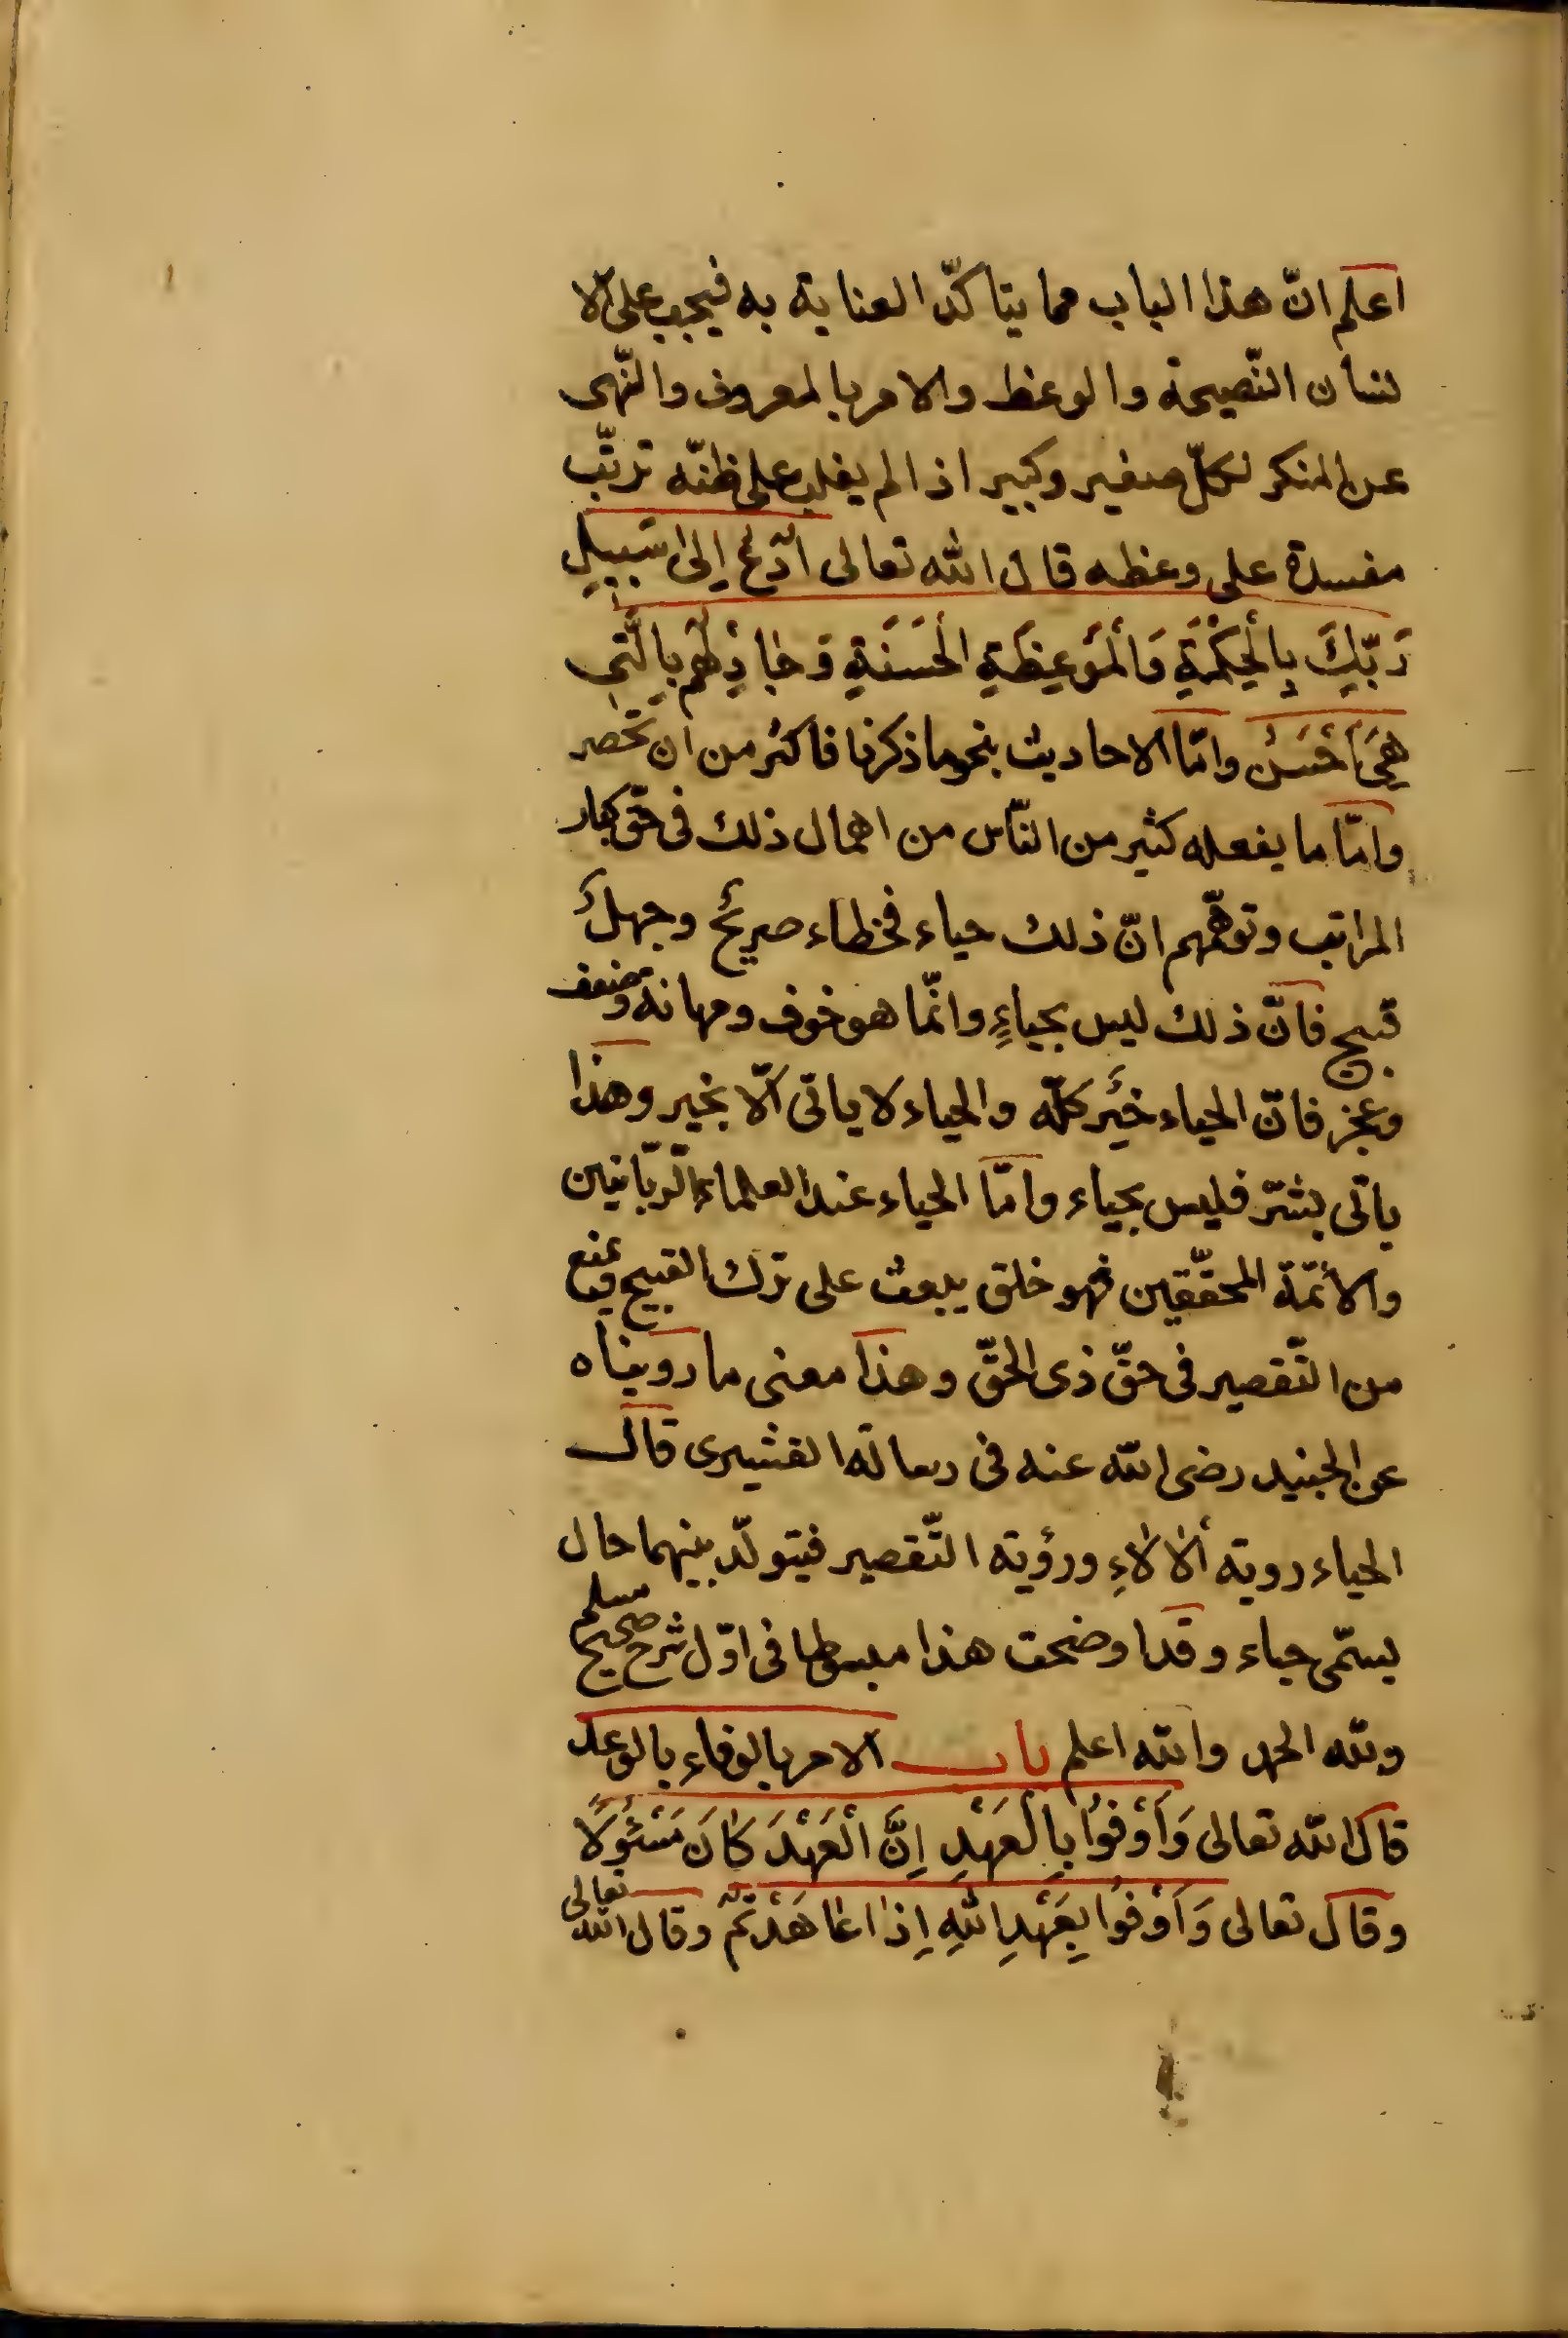 اعلم انّ هذا الباب مما يتاكّد العناية به فيجب على الا
نسان النّصيحة والوعظ والامر بالمعروف والنّهى
عن المنكر لكلّ صغير وكبير اذا لم يغلب على ظنّه ترتّب
مفسدة على وعظه قال الله تعالى اُدْعُ إِلىٰ سَبِيلِ
رَبِّكَ بِالْحِكْمَةِ وَالْمَوْعِظَةِ الْحَسَنَةِ وَجَادِلْهُم بِالَّتِي
هِيَ أَحْسَنُ وامّا الاحاديث بنحو ما ذكرنا فاكثر من ان تحصر
وامّا ما يفعله كثير من النّاس من اهمال ذلك فى حقّ كبار
المراتب وتوهّمهم انّ ذلك حياء فخطاء صريحٌ وجهلٌ
قبيح فانّ ذلك ليس بحياءٍ وانّما هو خوف ومهانة وضعف
وعجز فانّ الحياء خَيْر كلّه والحياء لا ياتى الّا بخير وهذا
ياتى بشرّ فليس بحياء وامّا الحياء عند العلماء الرّبّانيين
والائمّة المحقّقين فهو خلق يبعث على ترك القبيح ويمنع
من التّقصير فى حقّ ذى الحقّ وهذا معنى ما رويناه
عن الجنيد رضى الله عنه فى رسالة القشيرى قال
الحياء روية الالاءِ ورؤية التّقصير فيتولّد بينهما حال
يسمّى حياء وقد اوضحت هذا مبسوطا فى اوّل شرح صحيح مسلم
ولله الحمد والله اعلم باب الامر بالوفاء بالوعد
قال الله تعالى وَأَوْفُوا بِالْعَهْدِ اِنَّ الْعَهْدَ كَانَ مَسْئُولًا
وقال تعالى وَاَوْفُوا بِعَهْدِ اللهِ اِذَا عَاهَدْتُمْ وقال الله تعالى